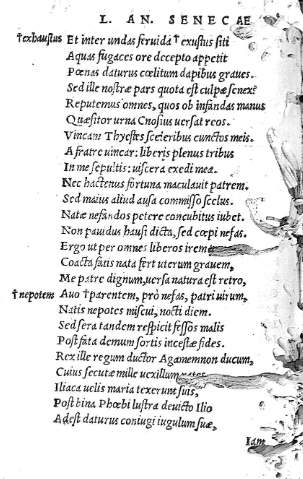 L. AN. SENECAE
†exhaustus Et inter undas feruida †exustus siti
Aquas fugaces ore decepto appetit
Pœnas daturus cœlitum dapibus graues.
Sed ille nostræ pars quota est culpæ senex?
Reputemus omnes, quos ob infandas manus
Quæsitor urna Cnosius uersat reos.
Vincam Thyestes sceleribus cunctos meis.
A fratre uincar: liberis plenus tribus
In me sepultis: uiscera exedi mea.
Nec hactenus fortuna maculauit patrem.
Sed maius aliud ausa commisso scelus.
Natæ nefandos petere concubitus iubet.
Non pauidus hausi dicta, sed cœpi nefas.
Ergo ut per omnes liberos irem
Coacta fatis nata fert uterum grauem,
Me patre dignum, uersa natura est retro,
†nepotem Auo †parentem, prò nefas, patri uirum,
Natis nepotes miscui, nocti diem.
Sed sera tandem respicit fessos malis
Post fata demum sortis incestæ fides.
Rex ille regum ductor Agamemnon ducum,
Cuius secutæ mille uexillum
Iliaca uelis maria texerunt suis,
Post bina Phœbi lustra deuicto Ilio
Adest daturus coniugi iugulum suæ,
Iam